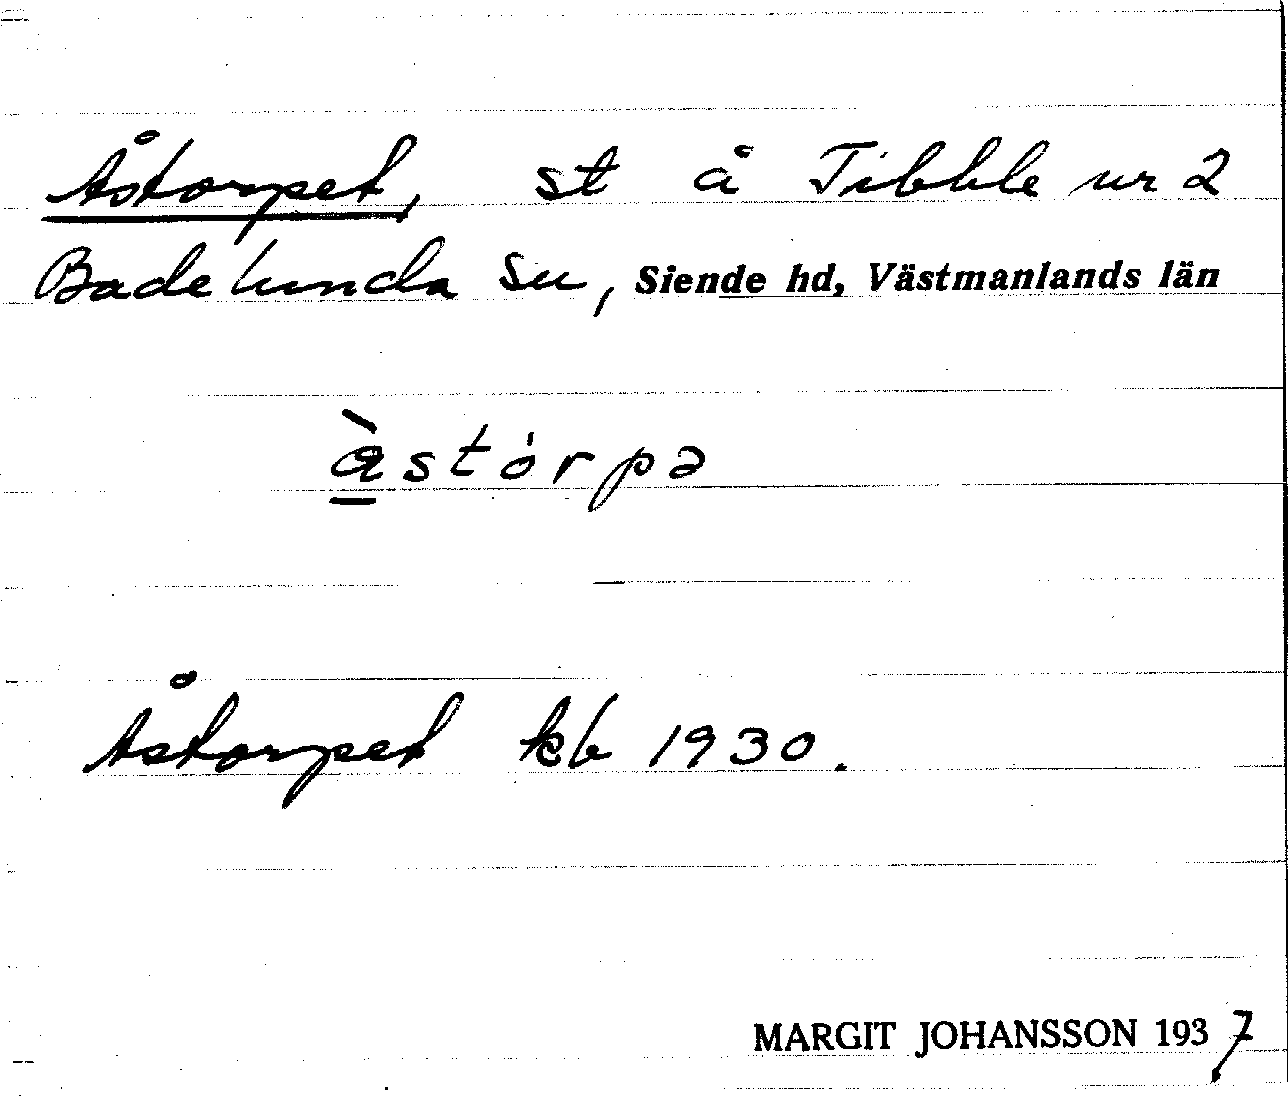 Åstorpet, st å Tibble nr 2
Badelunda sn, Siende hd, Västmanlands län
å̀stórpə
Åstorpet kb 1930.
MARGIT JOHANSSON 1937